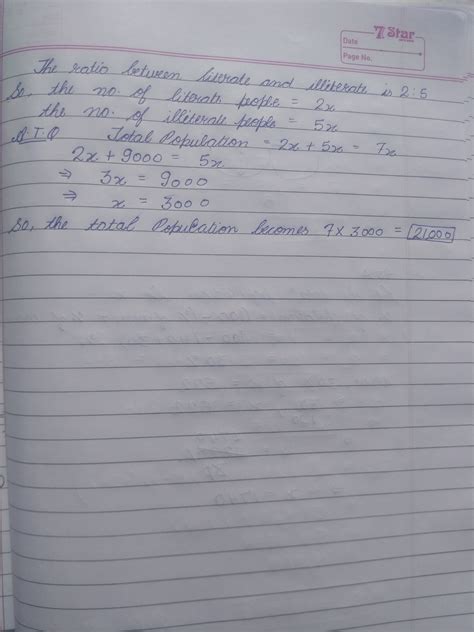 7 Star
Date
Page No.
The ratio between literate and illiterate is 2:5
So, the no. of literate people = 2x
the no. of illiterate people = 5x
A.T.Q Total Population = 2x + 5x = 7x
2x + 9000 = 5x
⇒ 3x = 9000
⇒ x = 3000
So, the total Population becomes 7 × 3000 = 21000